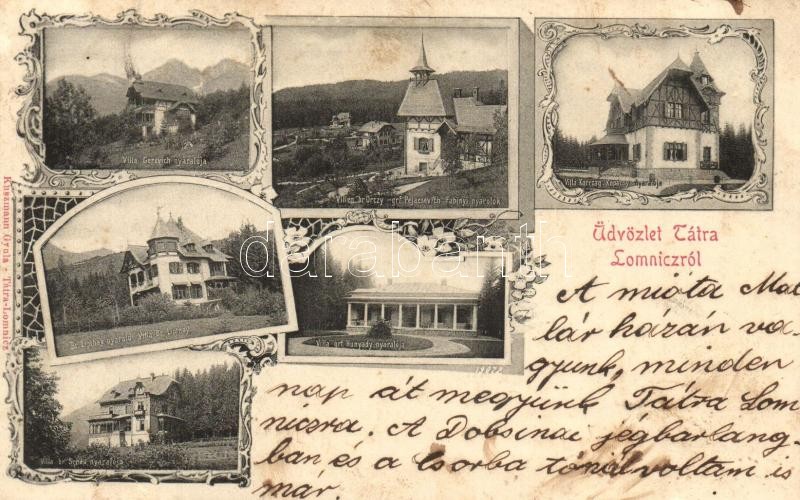 Villa Gerevich nyaralója
Villen Br Orczy - grf. Pejacsevich - Fabinyi nyaralók
Villa Korczag - Kopácsy nyaralója
Villa grf. Hunyady nyaralója
Villa br. nyaralója
Kuszmann Gyula - Tátra-Lomnicz
darabanth
Üdvözlet Tátra
Lomniczról
A mióta Mat
lár házán va-
gyunk, minden
nap át megyünk Tátra Lom
niczra. A Dobsinai jégbarlang-
ban és a Csorba tónál voltam is
már.